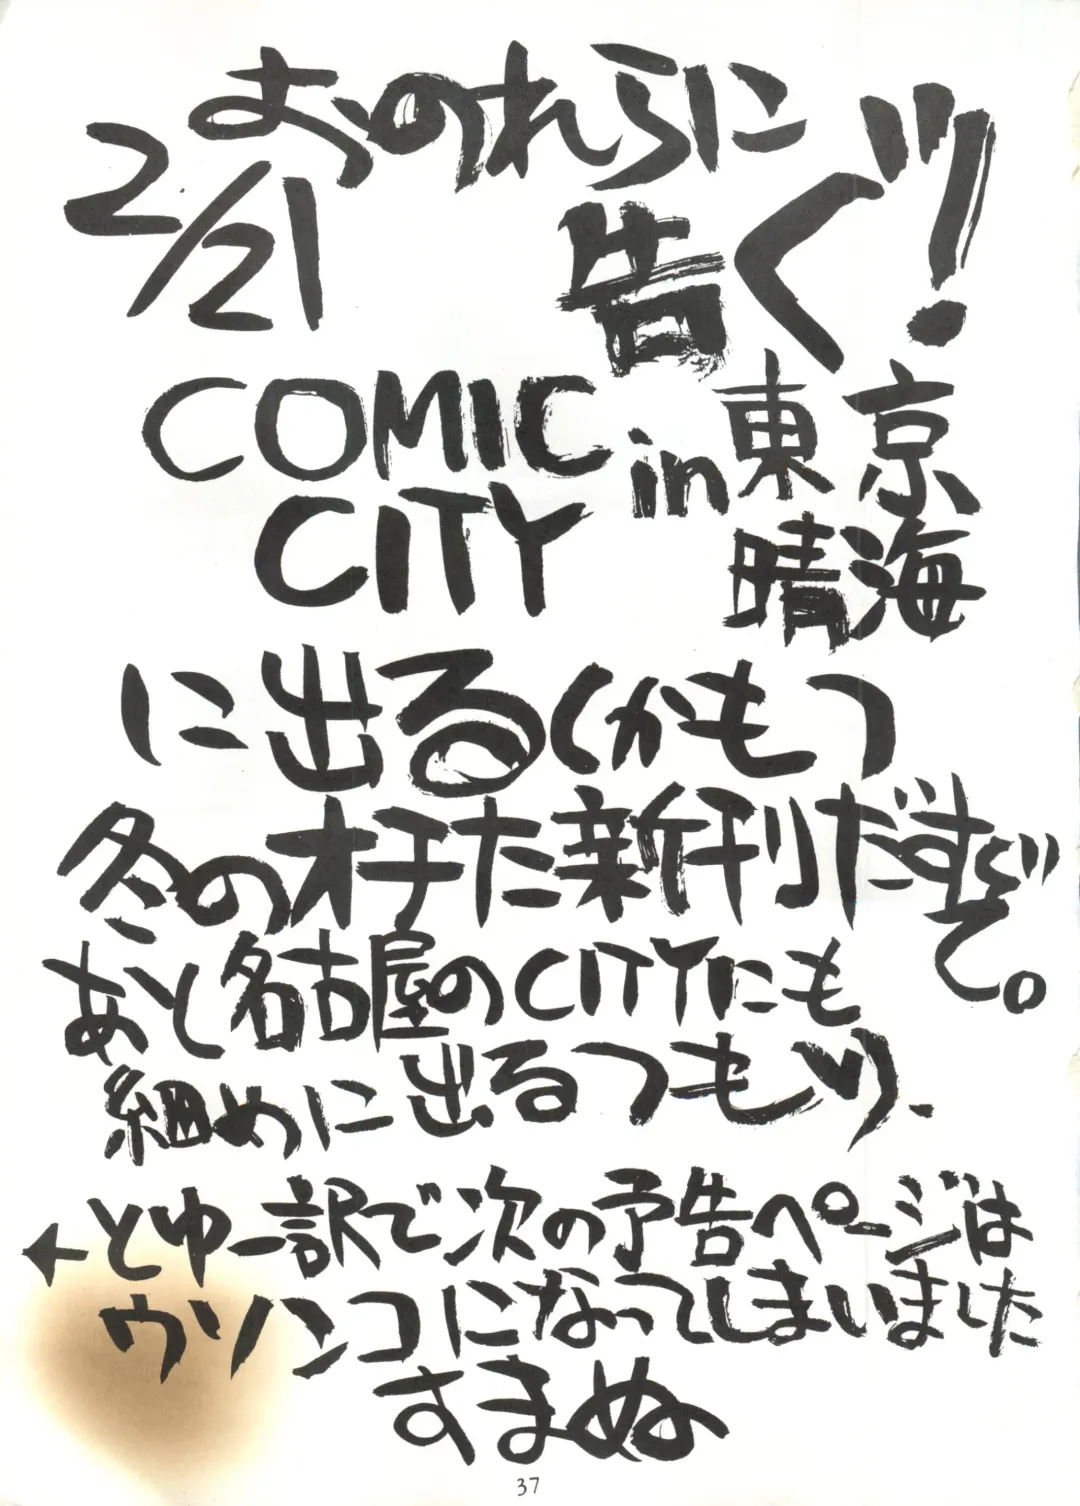 おのれらに
告ぐッ!
2/21
COMIC
CITY in 東京
晴海
に出る(かも)
冬のオチた新刊だすぞッ
て。
あと名古屋のCITYにも
組めに出るつもり、
←とゆー訳で次の予告ページは
ウソンコになってしまいました
すまぬ
37